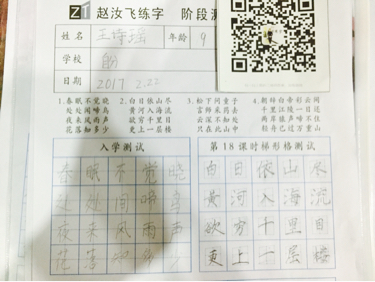 ZT 赵汝飞练字 阶段测
姓名 王诗瑶 年龄 9
学校
日期 2017 2.22
1.春眠不觉晓 2.白日依山尽 3.松下问童子 4.朝辞白帝彩云间
处处闻啼鸟 黄河入海流 言师采药去 千里江陵一日还
夜来风雨声 欲穷千里目 云深不知处 两岸猿声啼不住
花落知多少 更上一层楼 只在此山中 轻舟已过万重山
入学测试 第18课时梯形格测试
春眠不觉晓 白日依山尽
处处闻啼鸟 黄河入海流
夜来风雨声 欲穷千里目
花落知 更上一层楼